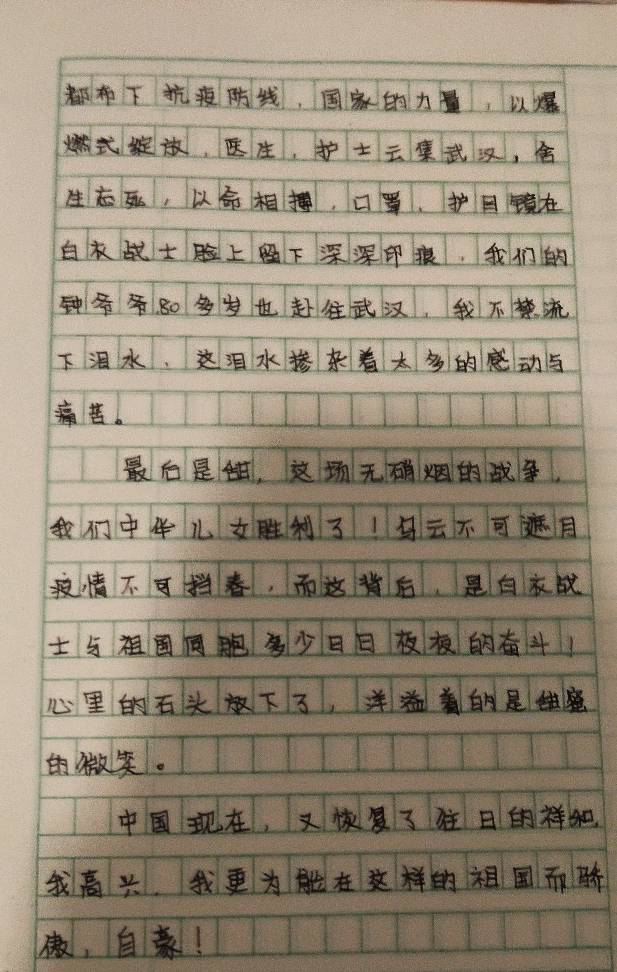 都布下抗疫防线，国家的力量，以爆
燃式绽放，医生，护士云集武汉，舍
生忘死，以命相搏，口罩、护目镜在
白衣战士脸上留下深深印痕，我们的
钟爷爷80多岁也赴往武汉，我不禁流
下泪水，这泪水掺杂着太多的感动与
痛苦。
最后是甜，这场无硝烟的战争，
我们中华儿女胜利了！乌云不可遮月
疫情不可挡春，而这背后，是白衣战
士与祖国同胞多少日日夜夜的奋斗！
心里的石头放下了，洋溢着的是甜蜜
的微笑。
中国现在，又恢复了往日的祥和，
我高兴，我更为能在这样的祖国而骄
傲，自豪！